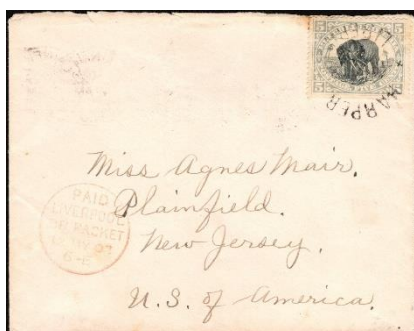 5 5
HARPER
5 5
Miss Agnes Mair.
Plainfield.
New Jersey.
U.S. of America.
PAID
LIVERPOOL
PACKET